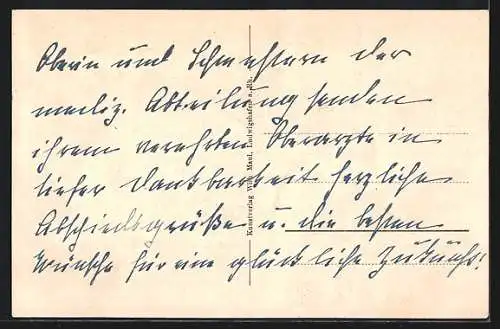 Oberin und Schwestern der
mediz. Abteilung senden
ihrem verehrten Oberarzte in
tiefer Dankbarkeit herzliche
Abschiedsgrüße u. die besten
Wünsche für eine glückliche Zukunft!
Kunstverlag Wilh. Maul, Ludwigshafen a. Rh.